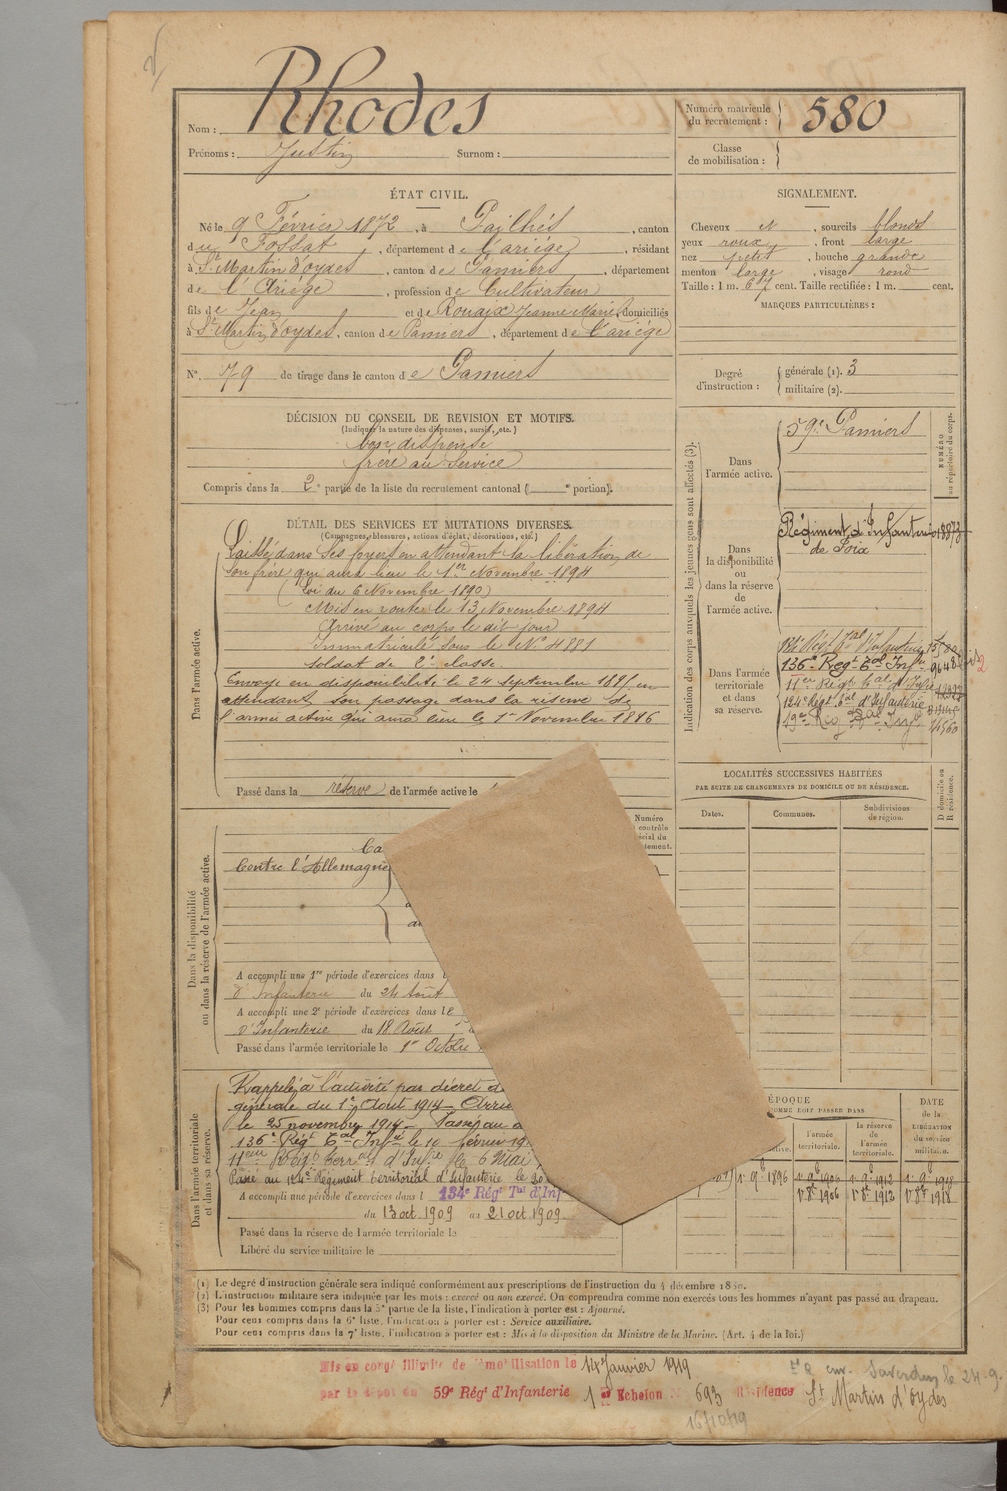 Nom : Rhodes
Prénoms : Justin Surnom :
Numéro matricule du recrutement : 580
Classe de mobilisation :
ÉTAT CIVIL.
Né le 9 Février 1872, à Pailhés, canton
du Fossat, département de l'ariége, résidant
à St Martin d'oydes, canton de Pamiers, département
de l'Ariége, profession de Cultivateur
fils de Jean et de Rouaix Jeanne Marie domiciliés
à St Martin d'oydes, canton de Pamiers, département de l'ariége
No. 79 de tirage dans le canton de Pamiers
SIGNALEMENT.
Cheveux et, sourcils blonds
yeux roux, front large
nez petit, bouche grande
menton large, visage rond
Taille : 1 m. 67 cent. Taille rectifiée : 1 m. cent.
MARQUES PARTICULIÈRES :
Degré d'instruction :
générale (1). 3
militaire (2).
DÉCISION DU CONSEIL DE REVISION ET MOTIFS.
(Indiquer la nature des dispenses, sursis, etc.)
bon dispensé
frère au Service
Compris dans la 2e partie de la liste du recrutement cantonal ( e portion).
DÉTAIL DES SERVICES ET MUTATIONS DIVERSES.
(Campagnes, blessures, actions d'éclat, décorations, etc.)
Dans l'armée active.
Laissé dans ses foyers en attendant la libération de
son frère qui aura lieu le 1er Novembre 1894
(loi du 6 Novembre 1890)
Mis en route le 13 Novembre 1894
Arrivé au corps le dit jour
Immatriculé sous le No 4881
Soldat de 2e classe.
Envoyé en disponibilité le 24 septembre 1895 en
attendant son passage dans la réserve de
l'armée active qui aura lieu le 1er Novembre 1896
Passé dans la réserve de l'armée active le
Indication des corps auxquels les jeunes gens sont affectés (3).
NUMÉRO au répertoire du corps.
Dans l'armée active.
59e Pamiers
Dans la disponibilité ou dans la réserve de l'armée active.
Régiment d'Infanterie 13873
de Foix
Dans l'armée territoriale et dans sa réserve.
136e Regt Tal Infie
11eu Régt Tal d'Infie
124e Régt Tal d'Infanterie
LOCALITÉS SUCCESSIVES HABITÉES
PAR SUITE DE CHANGEMENTS DE DOMICILE OU DE RÉSIDENCE.
D domicile ou R résidence.
Dates. Communes. Subdivisions de région.
Dans la disponibilité ou dans la réserve de l'armée active.
Numéro
contrôle
Ca
Contre l'Allemagne
A accompli une 1re période d'exercices dans l
d'Infanterie du 24 août
A accompli une 2e période d'exercices dans le
d'Infanterie du 18 Août
Passé dans l'armée territoriale le 1er Octobre
Dans l'armée territoriale et dans sa réserve.
Rappelé à l'activité par décret d
générale du 1er Aout 1914 – Arri
le 25 novembre 1914 – Passé au
136e Régt Tal Infie le 10 février 19
11eme Régt terral d'Infie le 6 Mai
Passé au 124e Régiment territorial d'Infanterie le 20
A accompli une période d'exercices dans l 134e Régt Tal d'Inf
du 13 oct. 1909 au 21 oct. 1909
Passé dans la réserve de l'armée territoriale le
Libéré du service militaire le
ÉPOQUE
DOIT PASSER DANS
l'armée territoriale.
la réserve de l'armée territoriale.
DATE de la LIBÉRATION du service militaire.
(1) Le degré d'instruction générale sera indiqué conformément aux prescriptions de l'instruction du 4 décembre 1889.
(2) L'instruction militaire sera indiquée par les mots : exercé ou non exercé. On comprendra comme non exercés tous les hommes n'ayant pas passé au drapeau.
(3) Pour les hommes compris dans la 5e partie de la liste, l'indication à porter est : Ajourné.
Pour ceux compris dans la 6e liste, l'indication à porter est : Service auxiliaire.
Pour ceux compris dans la 7e liste, l'indication à porter est : Mis à la disposition du Ministre de la Marine. (Art. 4 de la loi.)
Mis en congé illimité de démobilisation le 14 Janvier 1919
par le dépot du 59e Régt d'Infanterie 1er Echelon No 693 Résidence St Martin d'oydes
16/10/19